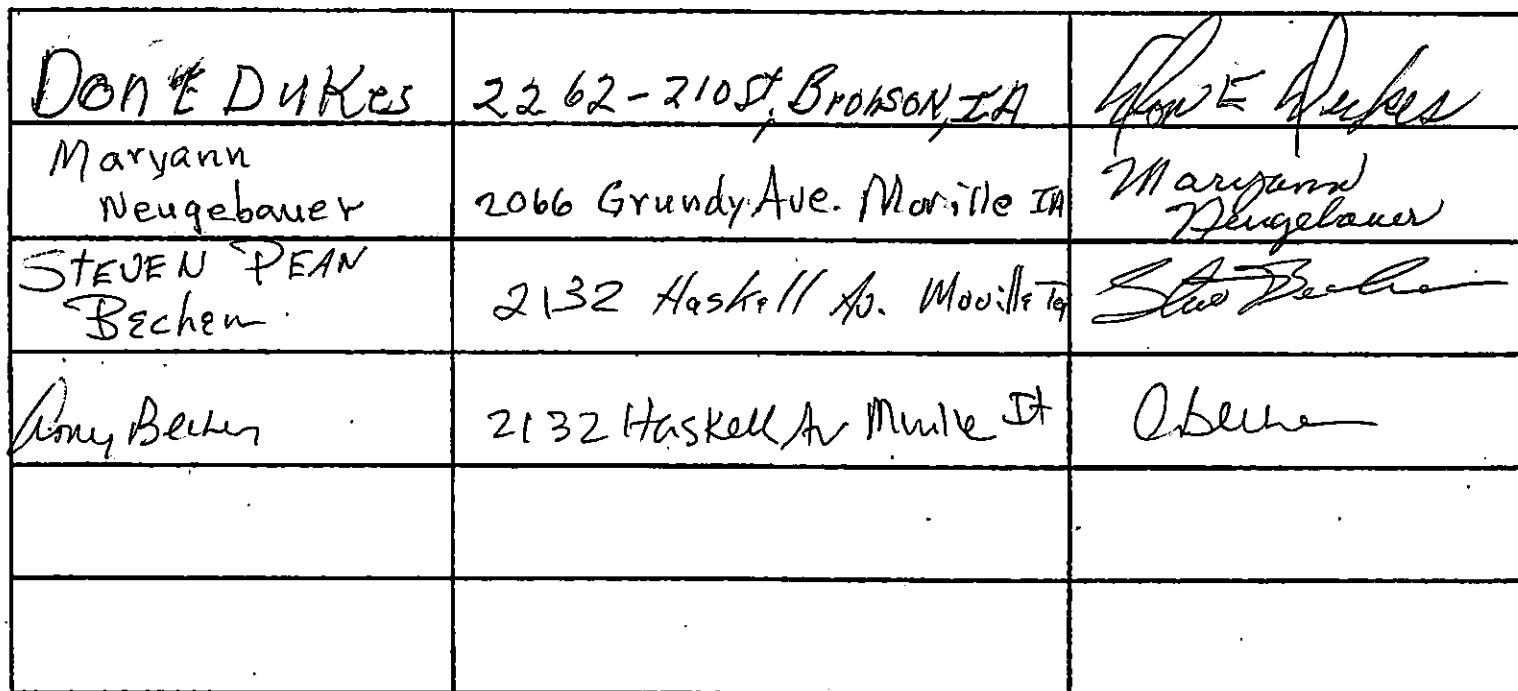 Don E Dukes 2262-210 St, Bronson, IA Don E Dukes
Maryann
Neugebauer 2066 Grundy Ave. Moville IA Maryann
Neugebauer
STEVEN DEAN
Bechen 2132 Haskell Av. Moville Ia Steve Bechen
Bechen 2132 Haskell Av Moville IA Bechen